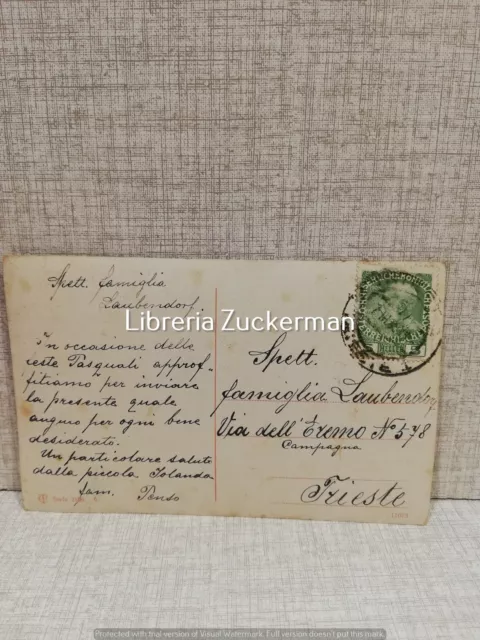 Spett. famiglia
Laubendorf
In occasione delle
feste Pasquali approf-
fitiamo per inviare
la presente quale
augurio per ogni bene
desiderato.
Un particolare saluto
dalla piccola Iolanda
fam. Penso
Libreria Zuckerman
Spett.
famiglia Laubendorf
Via dell'Eremo N 578
Campagna
Trieste
Protected with trial version of Visual Watermark. Full version doesn't put this mark.